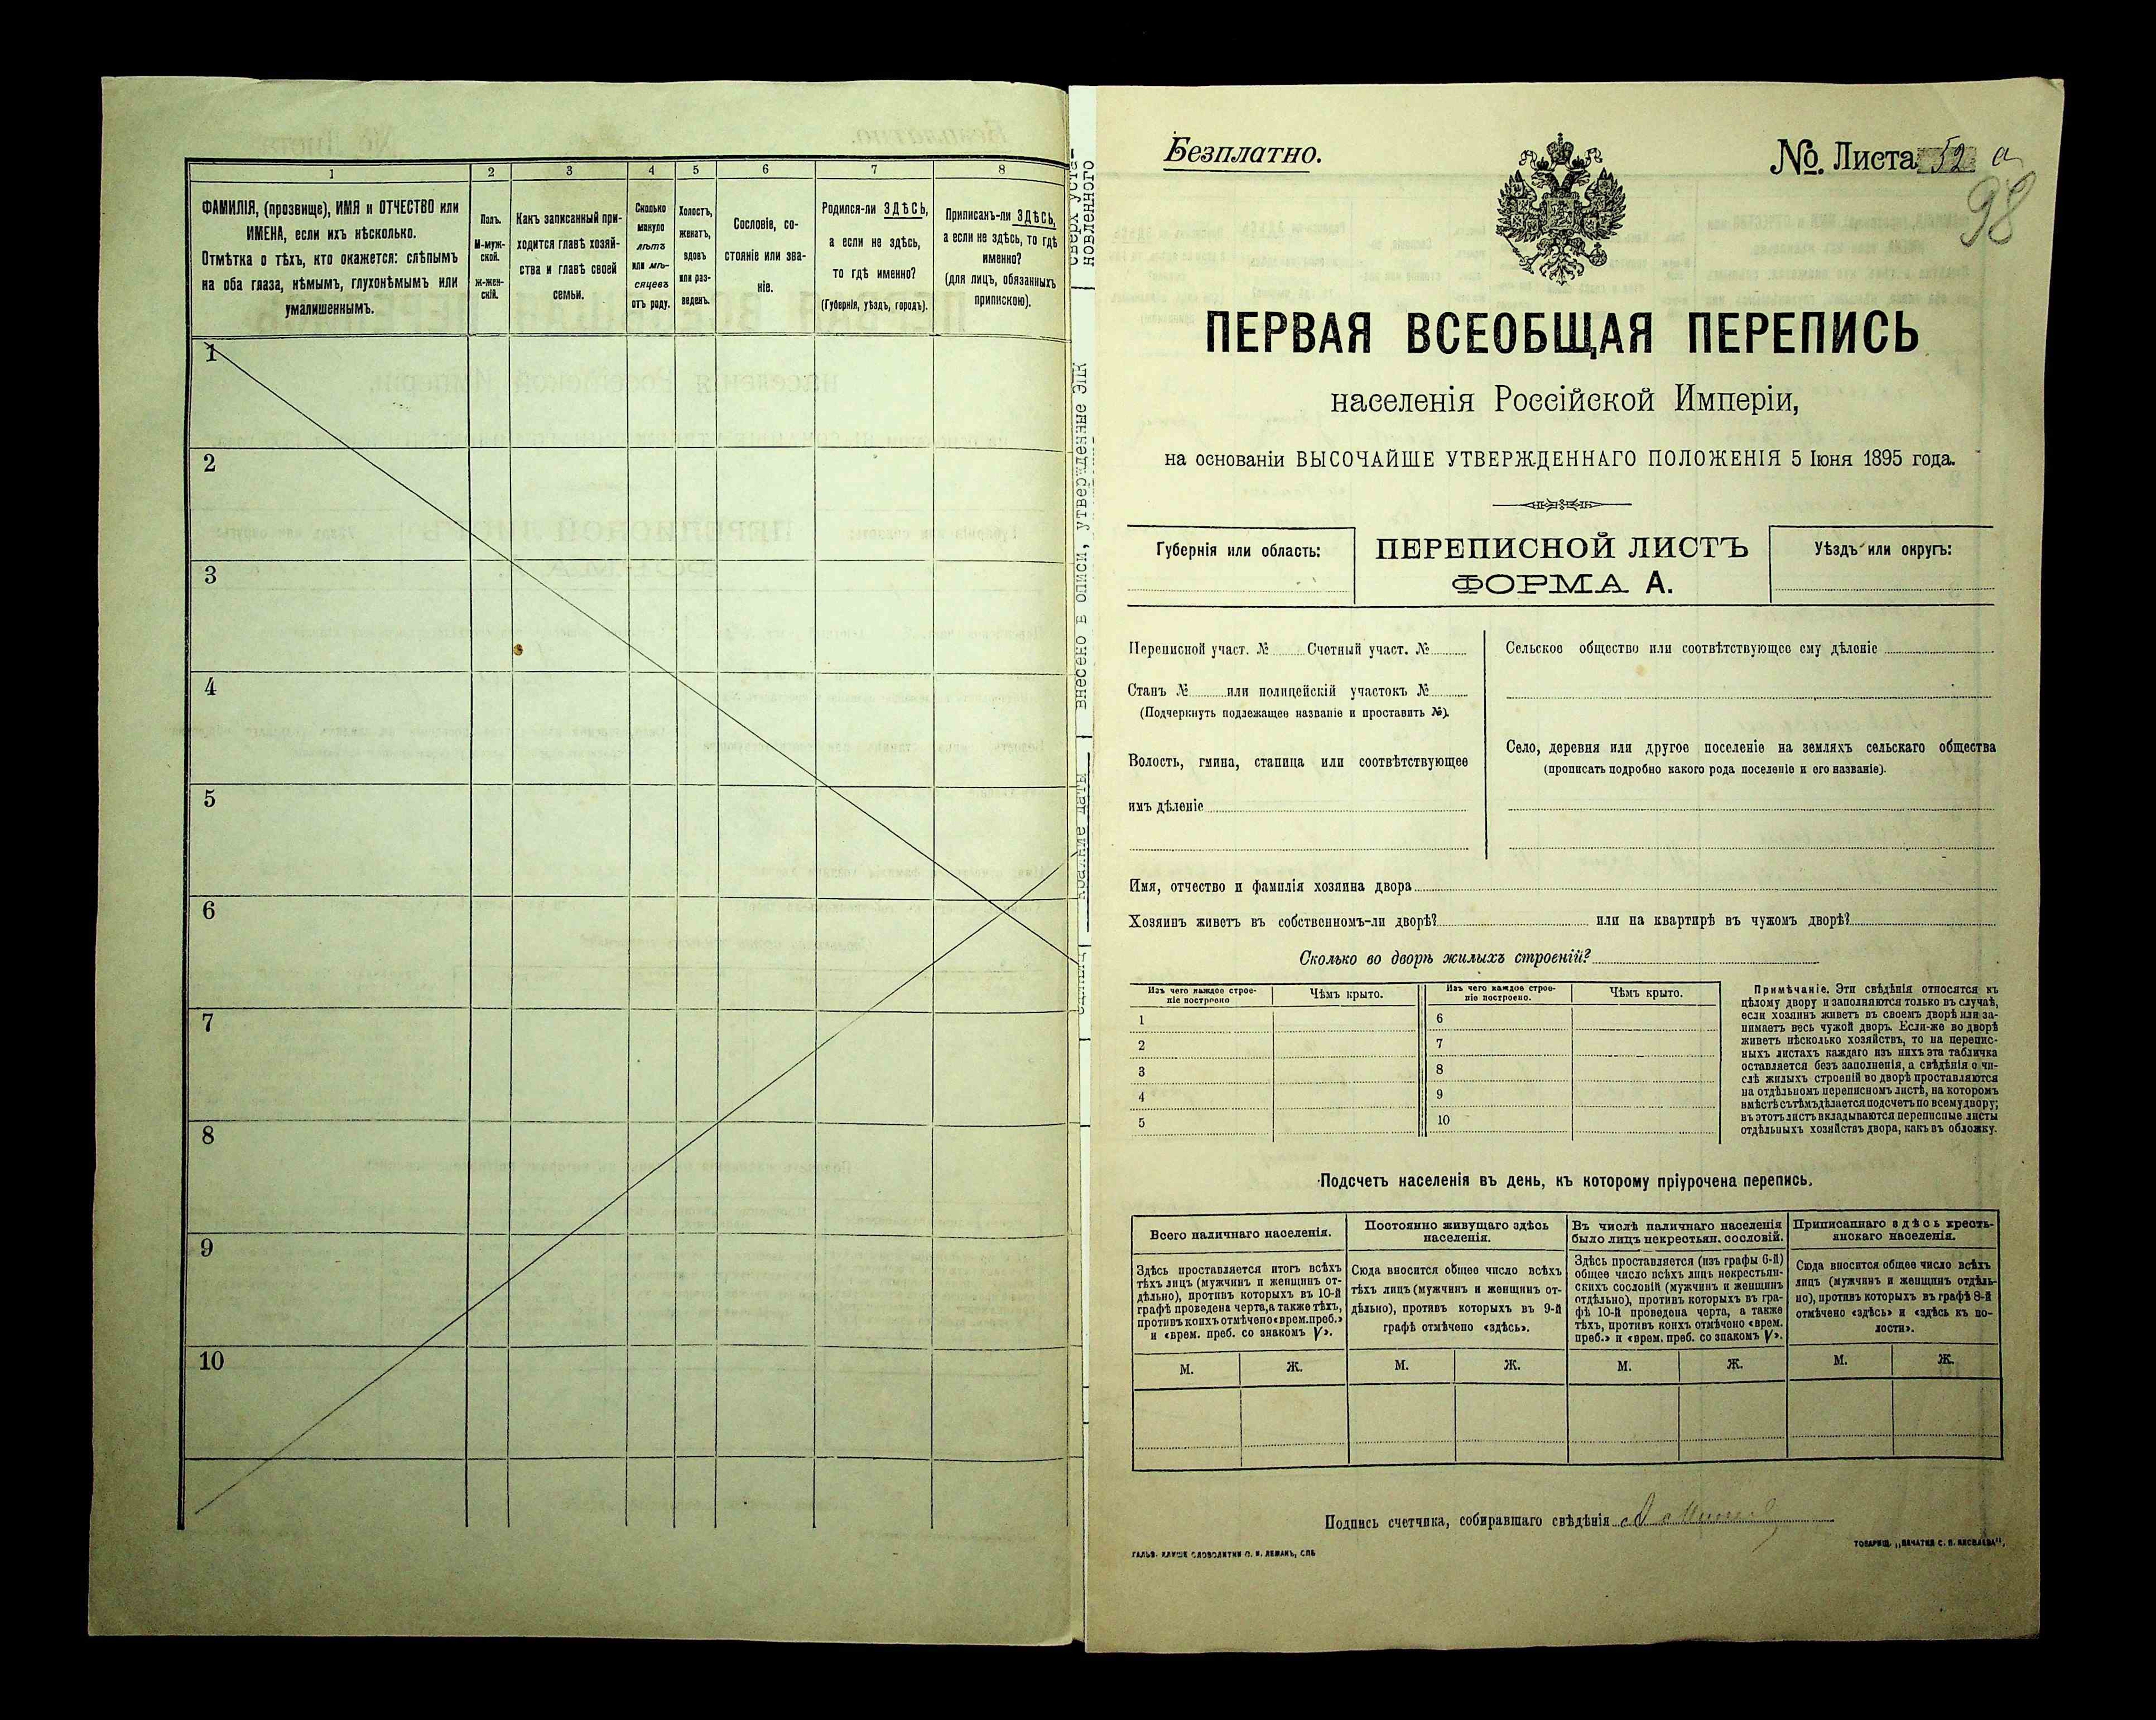 1
2
3
4
5
6
7
8
ФАМИЛІЯ, (прозвище), ИМЯ и ОТЧЕСТВО или
ИМЕНА, если ихъ нѣсколько.
Отмѣтка о тѣхъ, кто окажется: слѣпымъ
на оба глаза, нѣмымъ, глухонѣмымъ или
умалишеннымъ.
Полъ.
М-муж-
ской.
Ж-жен-
скій.
Какъ записанный при-
ходится главѣ хозяй-
ства и главѣ своей
семьи.
Сколько
минуло
лѣтъ
или мѣ-
сяцевъ
отъ роду.
Холостъ,
женатъ,
вдовъ
или раз-
веденъ.
Сословіе, со-
стояніе или зва-
ніе.
Родился-ли ЗДѢСЬ,
а если не здѣсь,
то гдѣ именно?
(Губернія, уѣздъ, городъ).
Приписанъ-ли ЗДѢСЬ,
а если не здѣсь, то гдѣ
именно?
(для лицъ, обязанныхъ
припискою).
1
2
3
4
5
6
7
8
9
10
новленного
внесено в описи, утвержденные ЭПК
Безплатно.
№ Листа 52 а
98
ПЕРВАЯ ВСЕОБЩАЯ ПЕРЕПИСЬ
населенія Россійской Имперіи,
на основаніи ВЫСОЧАЙШЕ УТВЕРЖДЕННАГО ПОЛОЖЕНІЯ 5 Іюня 1895 года.
Губернія или область:
ПЕРЕПИСНОЙ ЛИСТЪ
ФОРМА А.
Уѣздъ или округъ:
Переписной участ. № Счетный участ. №
Станъ № или полицейскій участокъ №
(Подчеркнуть подлежащее названіе и проставить №).
Волость, гмина, станица или соотвѣтствующее
имъ дѣленіе
Сельское общество или соотвѣтствующее ему дѣленіе
Село, деревня или другое поселеніе на земляхъ сельскаго общества
(прописать подробно какого рода поселеніе и его названіе).
Имя, отчество и фамилія хозяина двора
Хозяинъ живетъ въ собственномъ-ли дворѣ? или на квартирѣ въ чужомъ дворѣ?
Сколько во дворѣ жилыхъ строеній?
Изъ чего каждое строе-
ніе построено
Чѣмъ крыто.
1
2
3
4
5
Изъ чего каждое строе-
ніе построено.
Чѣмъ крыто.
6
7
8
9
10
Примѣчаніе. Эти свѣдѣнія относятся къ
цѣлому двору и заполняются только въ случаѣ,
если хозяинъ живетъ въ своемъ дворѣ или за-
нимаетъ весь чужой дворъ. Если-же во дворѣ
живетъ нѣсколько хозяйствъ, то на перепис-
ныхъ листахъ каждаго изъ нихъ эта табличка
оставляется безъ заполненія, а свѣдѣнія о чи-
слѣ жилыхъ строеній во дворѣ проставляются
на отдѣльномъ переписномъ листѣ, на которомъ
вмѣстѣ съ тѣмъ дѣлается подсчетъ по всему двору;
въ этотъ листъ вкладываются переписные листы
отдѣльныхъ хозяйствъ двора, какъ въ обложку.
Подсчетъ населенія въ день, къ которому пріурочена перепись.
Всего наличнаго населенія.
Здѣсь проставляется итогъ всѣхъ
тѣхъ лицъ (мужчинъ и женщинъ от-
дѣльно), противъ которыхъ въ 10-й
графѣ проведена черта, а также тѣхъ,
противъ коихъ отмѣчено «врем. преб.»
и «врем. преб. со знакомъ V».
Постоянно живущаго здѣсь
населенія.
Сюда вносится общее число всѣхъ
тѣхъ лицъ (мужчинъ и женщинъ от-
дѣльно), противъ которыхъ въ 9-й
графѣ отмѣчено «здѣсь».
Въ числѣ наличнаго населенія
было лицъ некрестьян. сословій.
Здѣсь проставляется (изъ графы 6-й)
общее число всѣхъ лицъ некрестьян-
скихъ сословій (мужчинъ и женщинъ
отдѣльно), противъ которыхъ въ гра-
фѣ 10-й проведена черта, а также
тѣхъ, противъ коихъ отмѣчено «врем.
преб.» и «врем. преб. со знакомъ V».
Приписаннаго здѣсь кресть-
янскаго населенія.
Сюда вносится общее число всѣхъ
лицъ (мужчинъ и женщинъ отдѣль-
но), противъ которыхъ въ графѣ 8-й
отмѣчено «здѣсь» и «здѣсь къ во-
лости».
М. Ж. М. Ж. М. Ж. М. Ж.
Подпись счетчика, собиравшаго свѣдѣнія
ГАЛЬВ. КЛИШЕ СЛОВОЛИТНИ О. И. ЛЕМАНЪ, СПБ
ТОВАРИЩ. „ПЕЧАТНЯ С. П. ЯКОВЛЕВА",